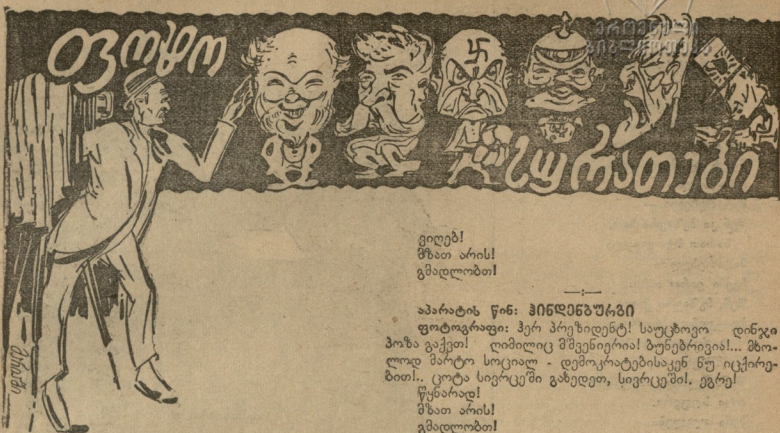 ფოტო
ეროვნული
ბიბლიოთეკა
სურათები
ვიღებ!
მზათ არის!
გმადლობთ!
აპარატის წინ: ჰინდენბურგი
ფოტოგრაფი: ჰერ პრეზიდენტ! საუცხოვო დინჯი
პოზა გაქვთ! ღიმილიც მშვენიერია! ბუნებრივია!... მხო-
ლოდ მარტო სოციალ - დემოკრატებისაკენ ნუ იცქირე-
ბით!.. ცოტა სივრცეში გახედეთ, სივრცეში!. ეგრე!
წყნარად!
მზათ არის!
გმადლობთ!